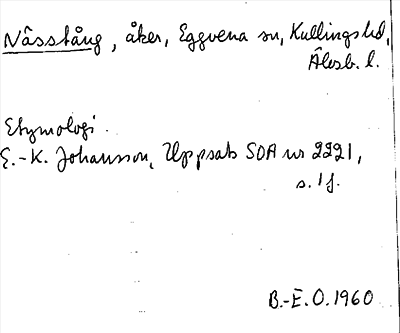 Nässtång, åker, Eggvena sn, Kullings hd,
Älvsb. l.
Etymologi.
E.-K. Johansson, Uppsats SOA nr 2221,
s. 1 f.
B.-E. O. 1960